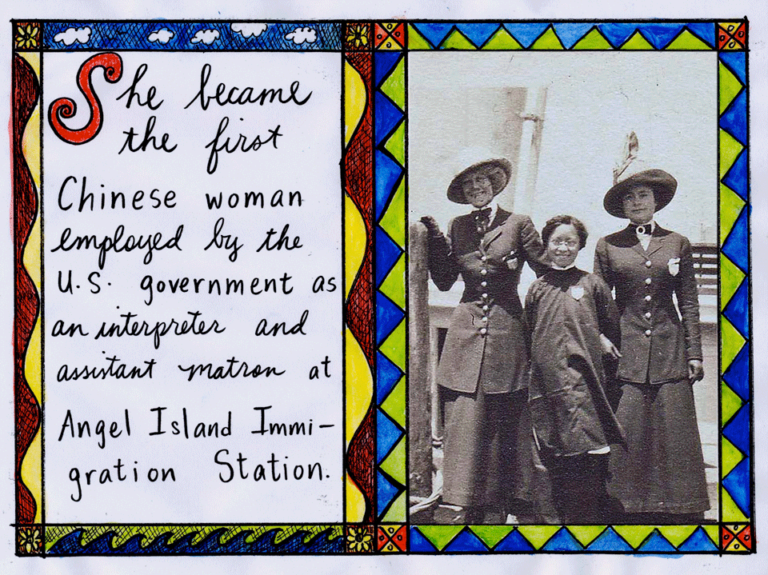 She became
the first
Chinese woman
employed by the
U.S. government as
an interpreter and
assistant matron at
Angel Island Immi-
gration Station.